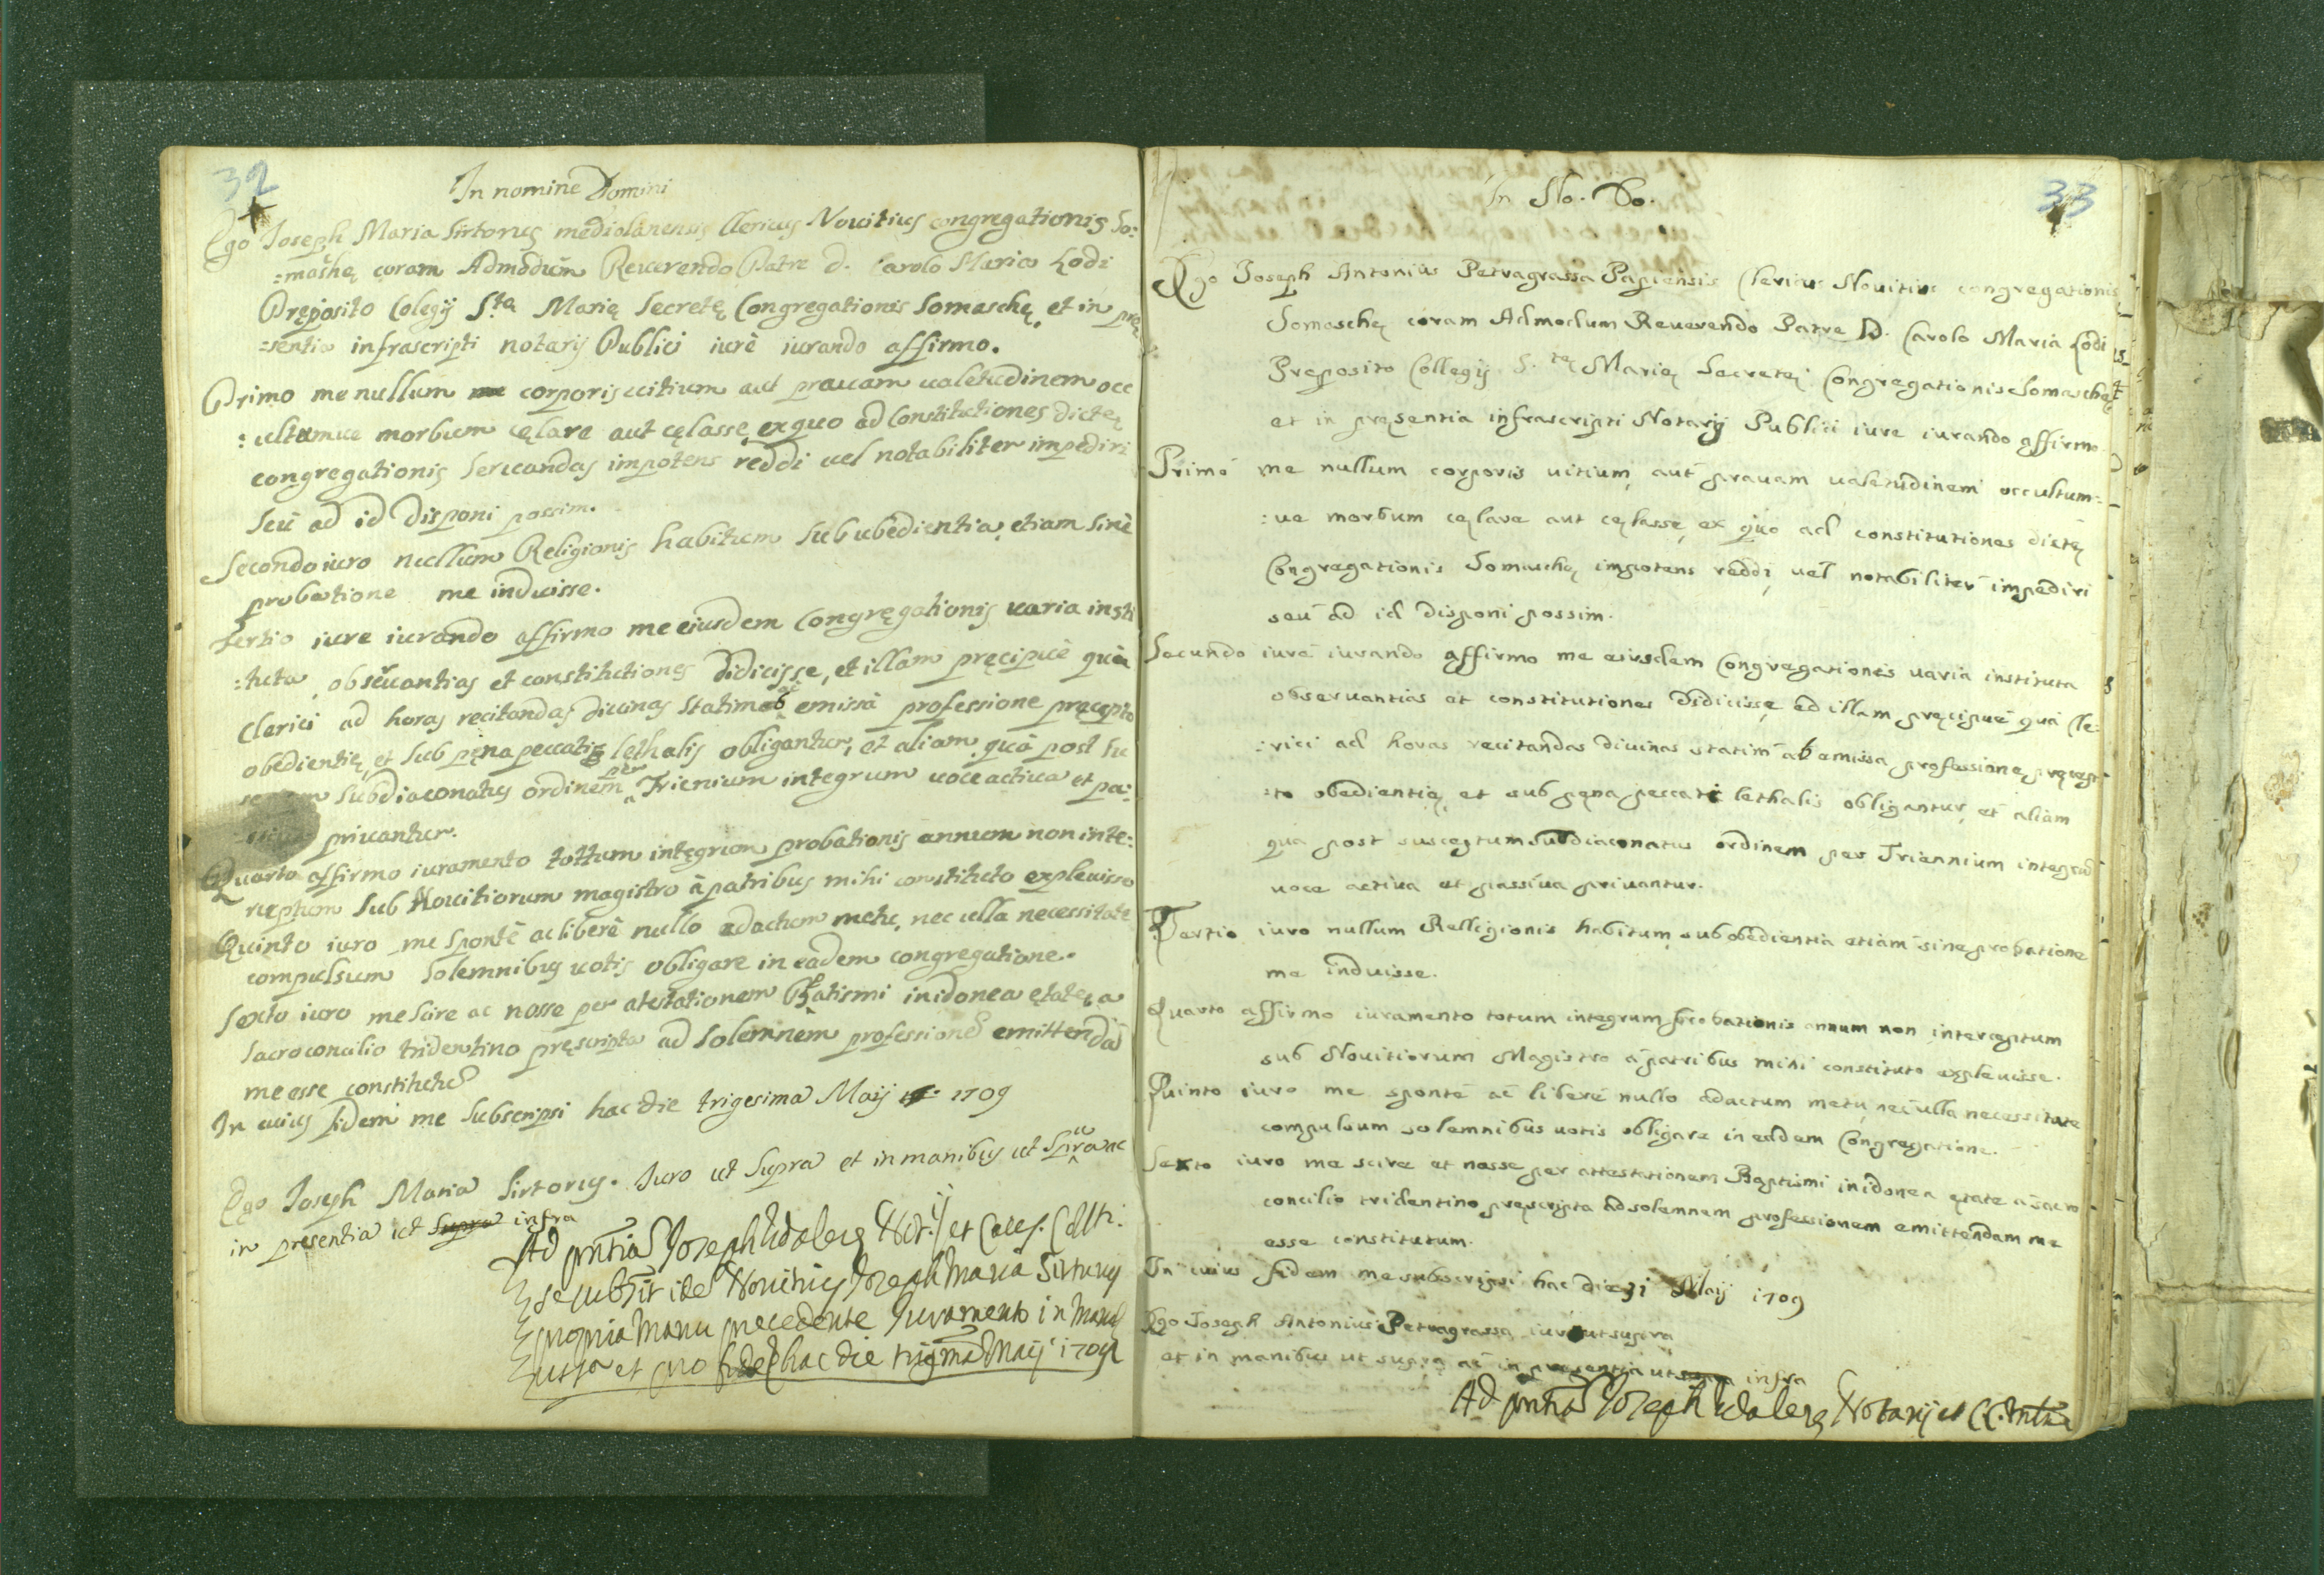 32
In nomine Domini
Ego Joseph Maria Sirtorus mediolanensis Clericus Nouitius congregationis So:
:maschę coram Admodum Reuerendo Patre D. Carolo Maria Lodi
Pręposito Colegij S.ta Marię Secretę Congregationis Somaschę, et in prę
:sentia infrascripti notarij Publici iurè iurando affirmo.
Primo me nullum corporis uitium aut prauam ualetudinem occ
:ultumue morbum cęlare aut cęlasse, ex quo ad Constitutiones dictę
congregationis seruandas impotens reddi uel notabiliter impediri
seu ad id disponi possim.
Secondo iuro nullum Religionis habitum sub ubedientia, etiam sinè
probatione me induisse.
Tertio iure iurando affirmo me eiusdem Congręgationis uaria insti
:tuta, obseruantias et constitutiones didicisse, et illam pręcipuè quâ
Clerici ad horas recitandas diuinas statim ab emissa professione pręcepto
obedientię, et sub pęna peccatis lethalis obligantur, et aliam quâ post su
subdiaconatus ordinem per Trienium integrum uoce actiua et pa:
priuantur.
Quarto affirmo iuramento tottum intęgrum probationis annum non inte:
ruptum sub Nouitiorum magistro à patribus mihi constituto expleuisse
Quinto iuro me spontè ac liberè nullo adactum metu, nec ulla necessitate
compulsum solemnibus uotis obligare in eadem congregatione.
Sexto iuro me scire ac nosse per atestationem Batismi in idonea ętate, a
sacro concilio tridentino pręscripta ad solemnem professione emittendā
me esse constitutū
In cuius fidem me subscripsi hac die trigesima Maij 1709
Ego Joseph Maria Sirtorus. Iuro ut supra et in manibus ut supra ac
in presentia ut supra infra
Ad pntia Joseph Not.ij et
se subsit idē Nouitius Joseph Maria Sirtorus
propria Manu precedente Iuramento in manz
ut s.a et pro fide hac die Maij 1709
33
In No. Do.
Ego Joseph Antonius Petragrassa Papiensis Clericus Nouitius congregationis
Somaschę coram Admodum Reuerendo Patre D. Carolo Maria Lodi
Preposito Collegij S.tę Marię Secretę Congregationis Somaschę
et in pręsentia infrascripti Notarij Publici iure iurando affirmo
Primo me nullum corporis uitium, aut prauam ualetudinem occultum:
:ue morbum cęlare aut cęlasse, ex quo ad constitutiones dictę
Congregationis Somaschę impotens reddi, uel notabiliter impediri
seu ad id disponi possim.
Secundo iure iurando affirmo me eiusdem Congregationis uaria instituta
obseruantias et constitutiones didicisse, ed illam pręcipuè quâ Cle:
:rici ad horas recitandas diuinas statim ab emissa professione pręcep:
:to obedientię, et sub pęna peccati lethalis obligantur, et aliam
qua post susceptum subdiaconatus ordinem per Triennium integrū
uoce actiua et passiua priuantur.
Tertio iuro nullum Relligionis habitum, sub obedientia etiam sine probatione
me induisse.
Quarto affirmo iuramento totum integrum probationis annum non interceptum
sub Nouitiorum Magistro à patribus mihi constituto expleuisse.
Quinto iuro me spontè ac liberè nullo adactum metu, nec ulla necessitate
compulsum solemnibus uotis obligare in eadem Congregatione.
Sexto iuro me scire et nosse per attestationem Baptismi in idonea ętate à sacro
concilio tridentino pręscripta ad solemnem professionem emittendam me
esse constitutum.
In cuius fidem me subscripsi hac die 31 Maij 1709
Ego Joseph Antonius Petragrassa iuro ut supra
et in manibus ut supra ac in praesentia ut supra infra
Ad pntia Joseph Notarij et